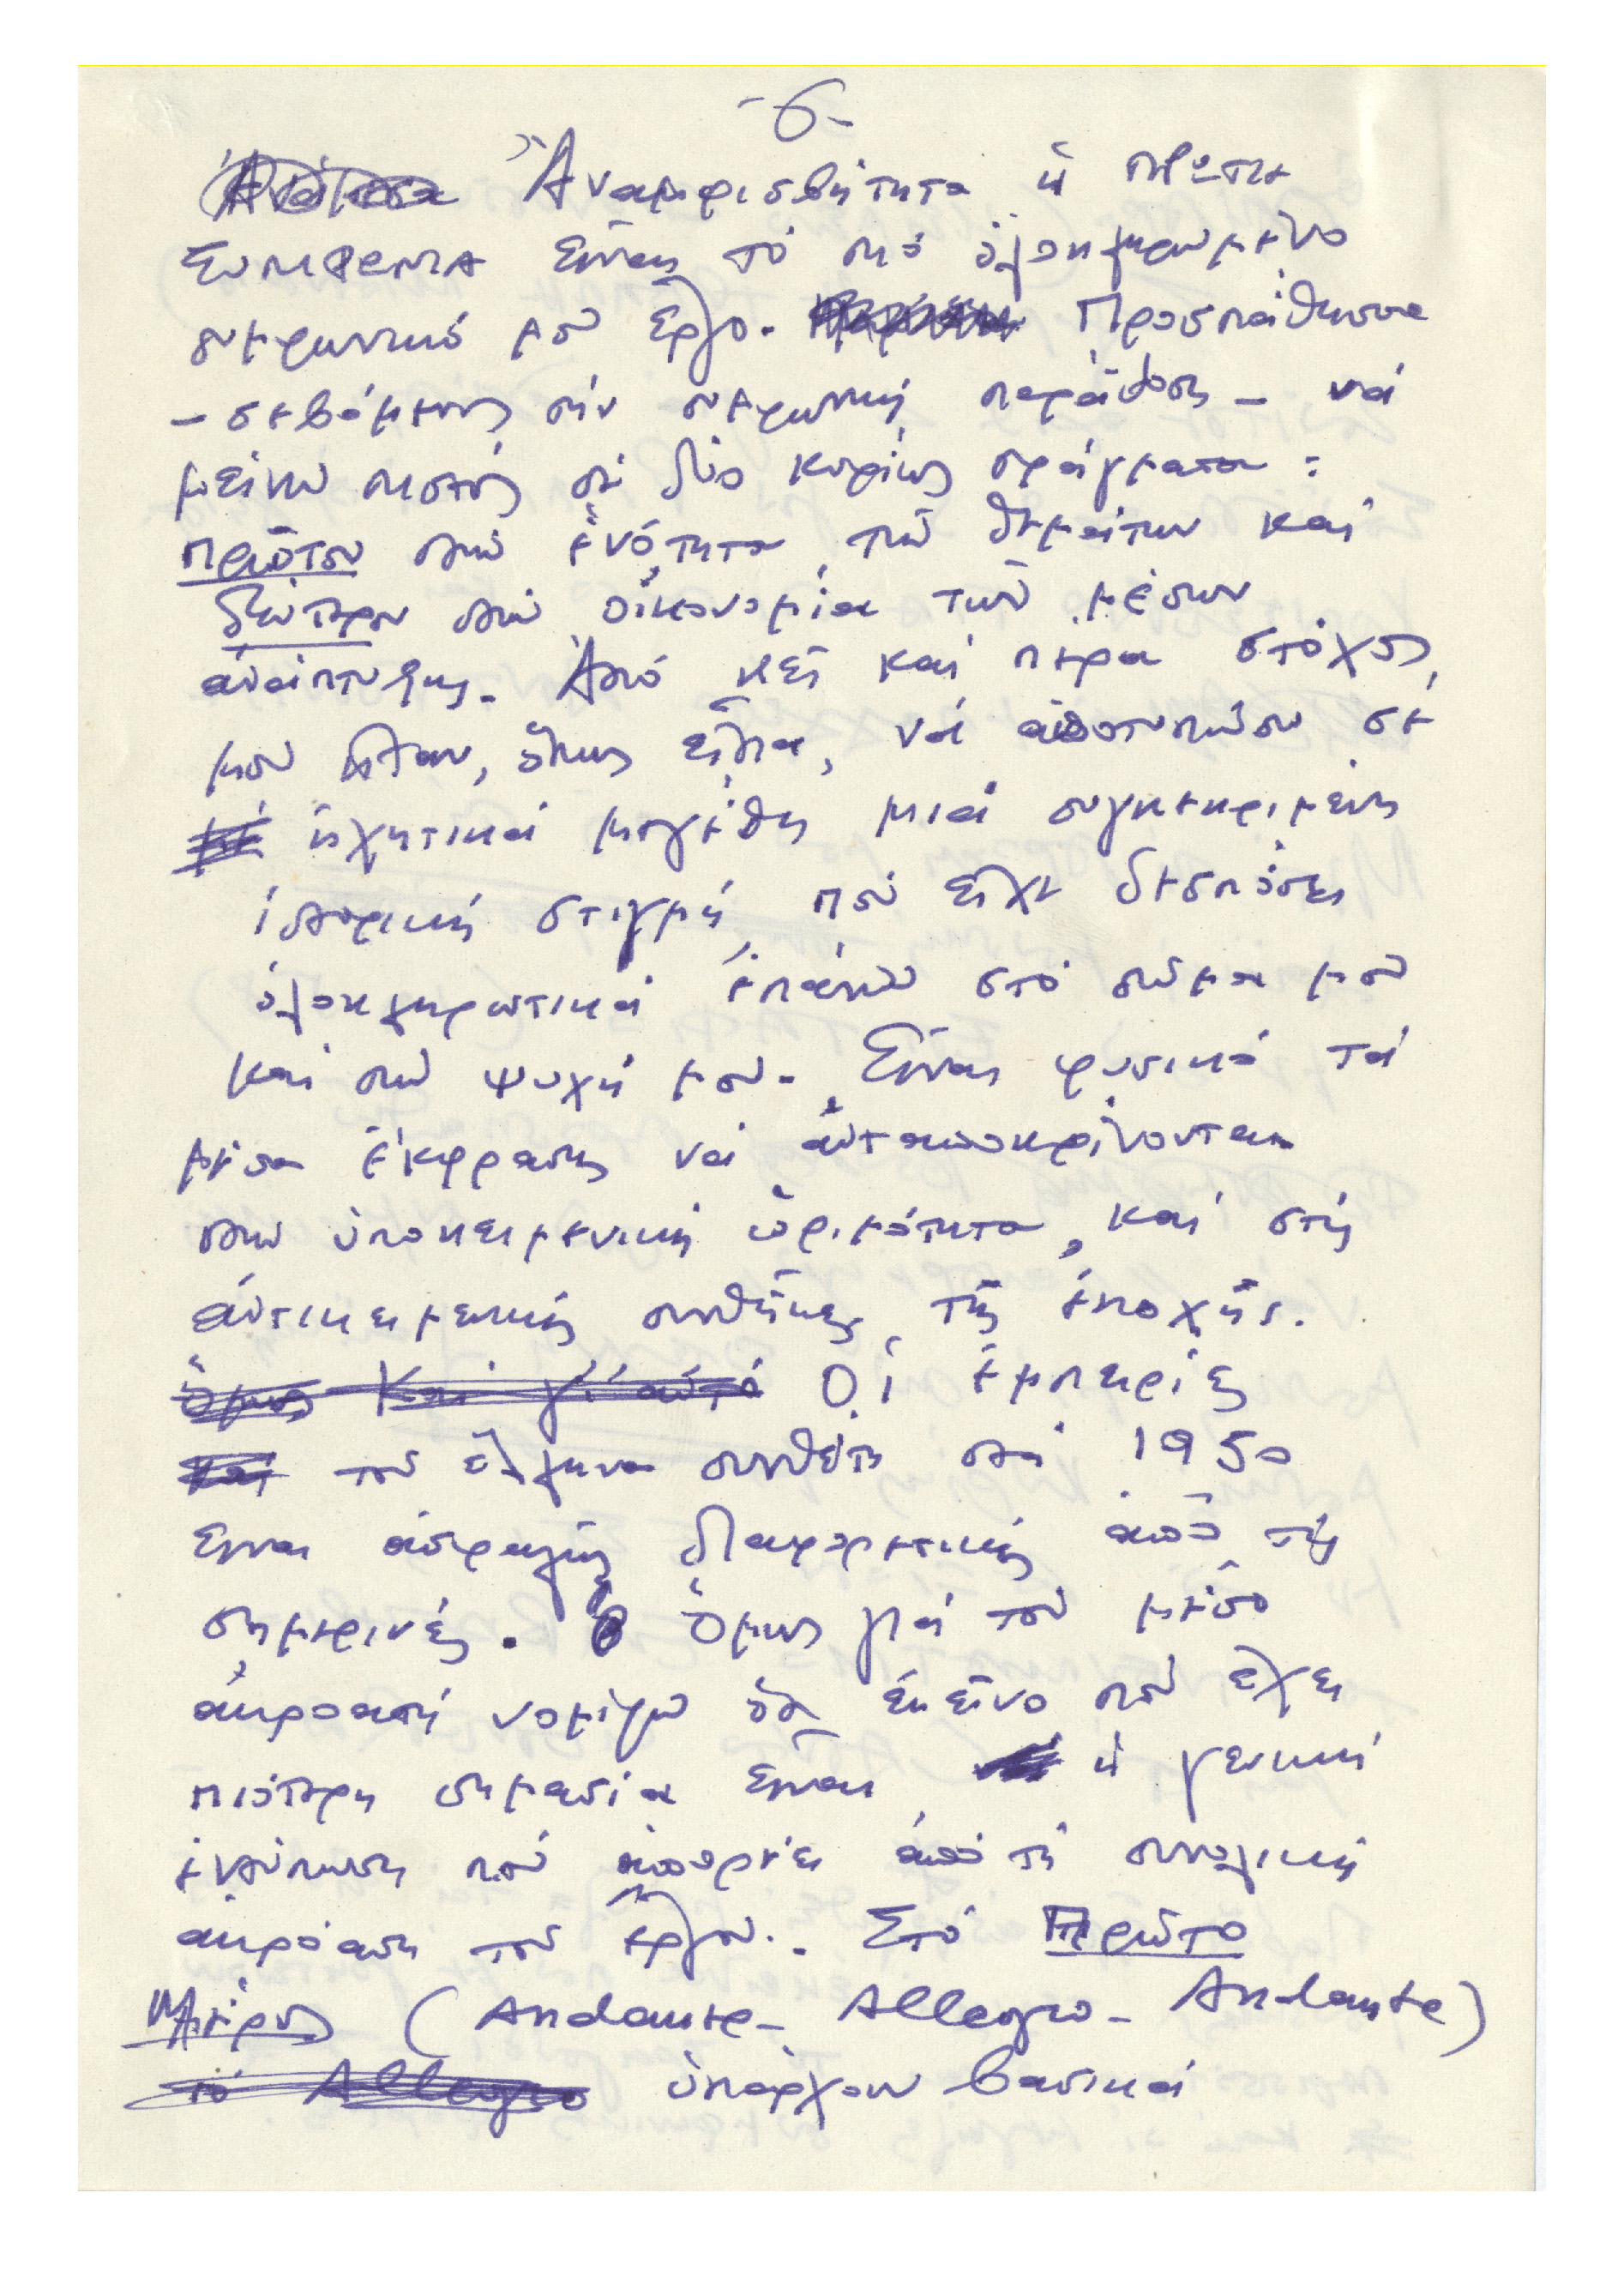 -6-
Ἀναμφισβήτητα ἡ ΠΡΩΤΗ
ΣΥΜΦΩΝΙΑ εἶναι τό πιό ὁλοκληρωμένο
συμφωνικό μου ἔργο. Προσπάθησα
- σεβόμενος τήν συμφωνική παράδοση - νά
μείνω πιστός σέ δύο κυρίως πράγματα :
πρῶτον στήν ἑνότητα τῶν θεμάτων καί
δεύτερον στήν οἰκονομία τῶν μέσων
ἀνάπτυξης. Ἀπό κεῖ καί πέρα στόχος
μου ἦταν, ὅπως εἶπα, νά ἀποτυπώσω σέ
ἠχητικά μεγέθη μιά συγκεκριμένη
ἱστορική στιγμή, πού εἶχε δεσπόσει
ὁλοκληρωτικά ἐπάνω στό σῶμα μου
καί στήν ψυχή μου. Εἶναι φυσικό τά
μέσα ἔκφρασης νά ἀνταποκρίνονται
στήν ὑποκειμενική ὡριμότητα, καί στίς
ἀντικειμενικές συνθῆκες τῆς ἐποχῆς.
Ὅμως Καί γι' αὐτό Οἱ ἐμπειρίες
καί τοῦ ἕλληνα συνθέτη στά 1950
εἶναι ἀσφαλῶς διαφορετικές ἀπό τίς
σημερινές. Ὅμως γιά τόν μέσο
ἀκροατή νομίζω ὅτι ἐκεῖνο πού ἔχει
πιότερη σημασία εἶναι ἡ γενική
ἐντύπωση πού ἀπορρέει ἀπό τή συνολική
ἀκρόαση τοῦ ἔργου. Στό Πρῶτο
Μέρος (Andante - Allegro - Andante)
τό Allegro ὑπάρχουν βασικά